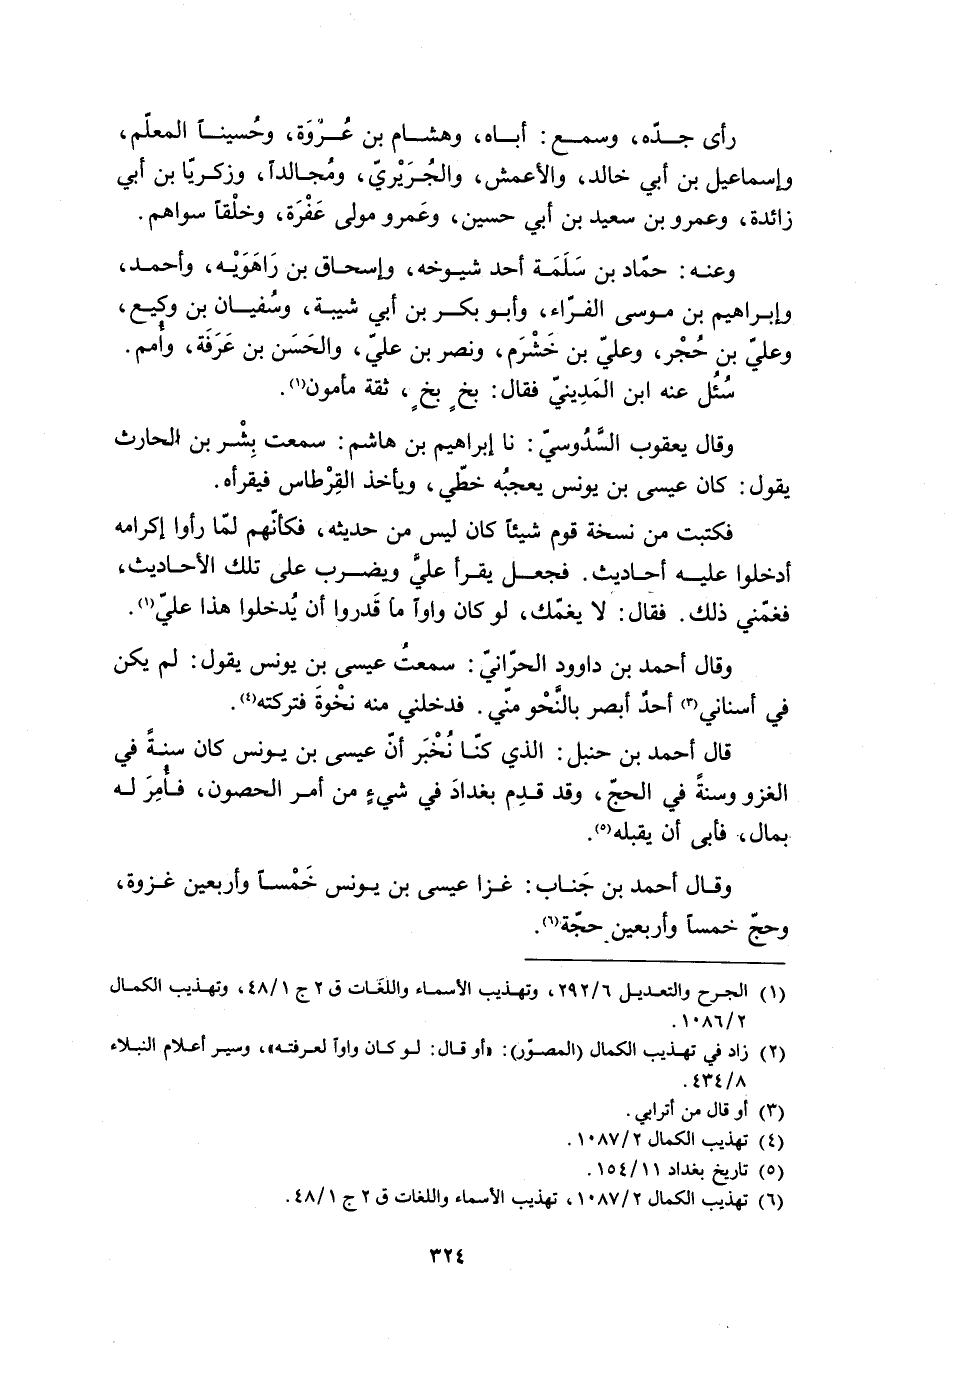 رأى جـدّه، وسمـع: أبـاه، وهشـام بن عُـرْوَة، وحُسينـاً المعلّم،
وإسماعيل بن أبي خالد، والأعمش، والجُرَيْريّ، ومُجـالداً، وزكريّا بن أبي
زائدة، وعمرو بن سعيد بن أبي حسين، وعَمرو مولى غَفْرَة، وخلْقاً سواهم.
وعنـه: حمّاد بن سَلَمَـة أحد شيـوخه، وإسحـاق بن رَاهَوَيْـه، وأحمـد،
وإبـراهيم بن مـوسى الفـرّاء، وأبـو بكـر بن أبي شيبـة، وسُفيـان بن وكيـع،
وعليّ بن حُجْر، وعليّ بن خَشْرَم، ونصر بن عليّ، والحَسَن بن عَرَفَة، وأُمم.
سُئل عنه ابن المَدِينيّ فقال: بخٍ بخٍ، ثقة مأمون(١).
وقال يعقوب السَّدُوسيّ: نا إبراهيم بن هاشم: سمعت بِشْر بن الحارث
يقول: كان عيسى بن يونس يعجبُه خطّي، ويأخذ القِرْطاس فيقرأه.
فكتبت من نسخة قوم شيئاً كان ليس من حديثه، فكأنّهم لمّا رأوا إكرامه
أدخلوا عليـه أحـاديث. فجعـل يقـرأ عليَّ ويضـرب على تلك الأحـاديث،
فغمّني ذلك. فقال: لا يغمّك، لو كان واواً ما قَدروا أن يُدخلوا هذا عليّ(١).
وقال أحمد بن داوود الحرّانيّ: سمعتُ عيسى بن يونس يقول: لم يكن
في أسناني(٣) أحدٌ أبصر بالنَّحْو منّي. فدخلني منه نخْوةَ فتركته(٤).
قال أحمد بن حنبل: الذي كنّـا نُخْبَر أنّ عيسى بن يـونس كان سنـةً في
الغزو وسنةً في الحجّ، وقد قدِم بغدادَ في شيءٍ من أمر الحصون، فـأُمِرَ لـه
بمال، فأبى أن يقبله(٥).
وقـال أحمد بن جَنـاب: غـزا عيسى بن يـونس خَمْسـاً وأربعين غـزوة،
وحجّ خمساً وأربعين حجّة(٦).
(١) الجرح والتعديل ٢٩٢/٦، وتهذيب الأسماء واللغَات ق ٢ ج ٤٨/١، وتهذيب الكمال
١٠٨٦/٢.
(٢) زاد في تهذيب الكمال (المصوّر): «أو قال: لو كان واواً لعرفته»، وسير أعلام النبلاء
٤٣٤/٨.
(٣) أو قال من أترابي.
(٤) تهذيب الكمال ١٠٨٧/٢.
(٥) تاريخ بغداد ١٥٤/١١.
(٦) تهذيب الكمال ١٠٨٧/٢، تهذيب الأسماء واللغات ق ٢ ج ٤٨/١.
٣٢٤